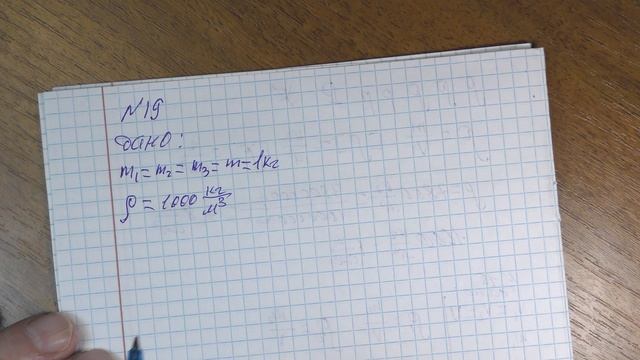 N19
Дано:
m₁=m₂=m₃=m=1кг
ρ=1000 кг/м³